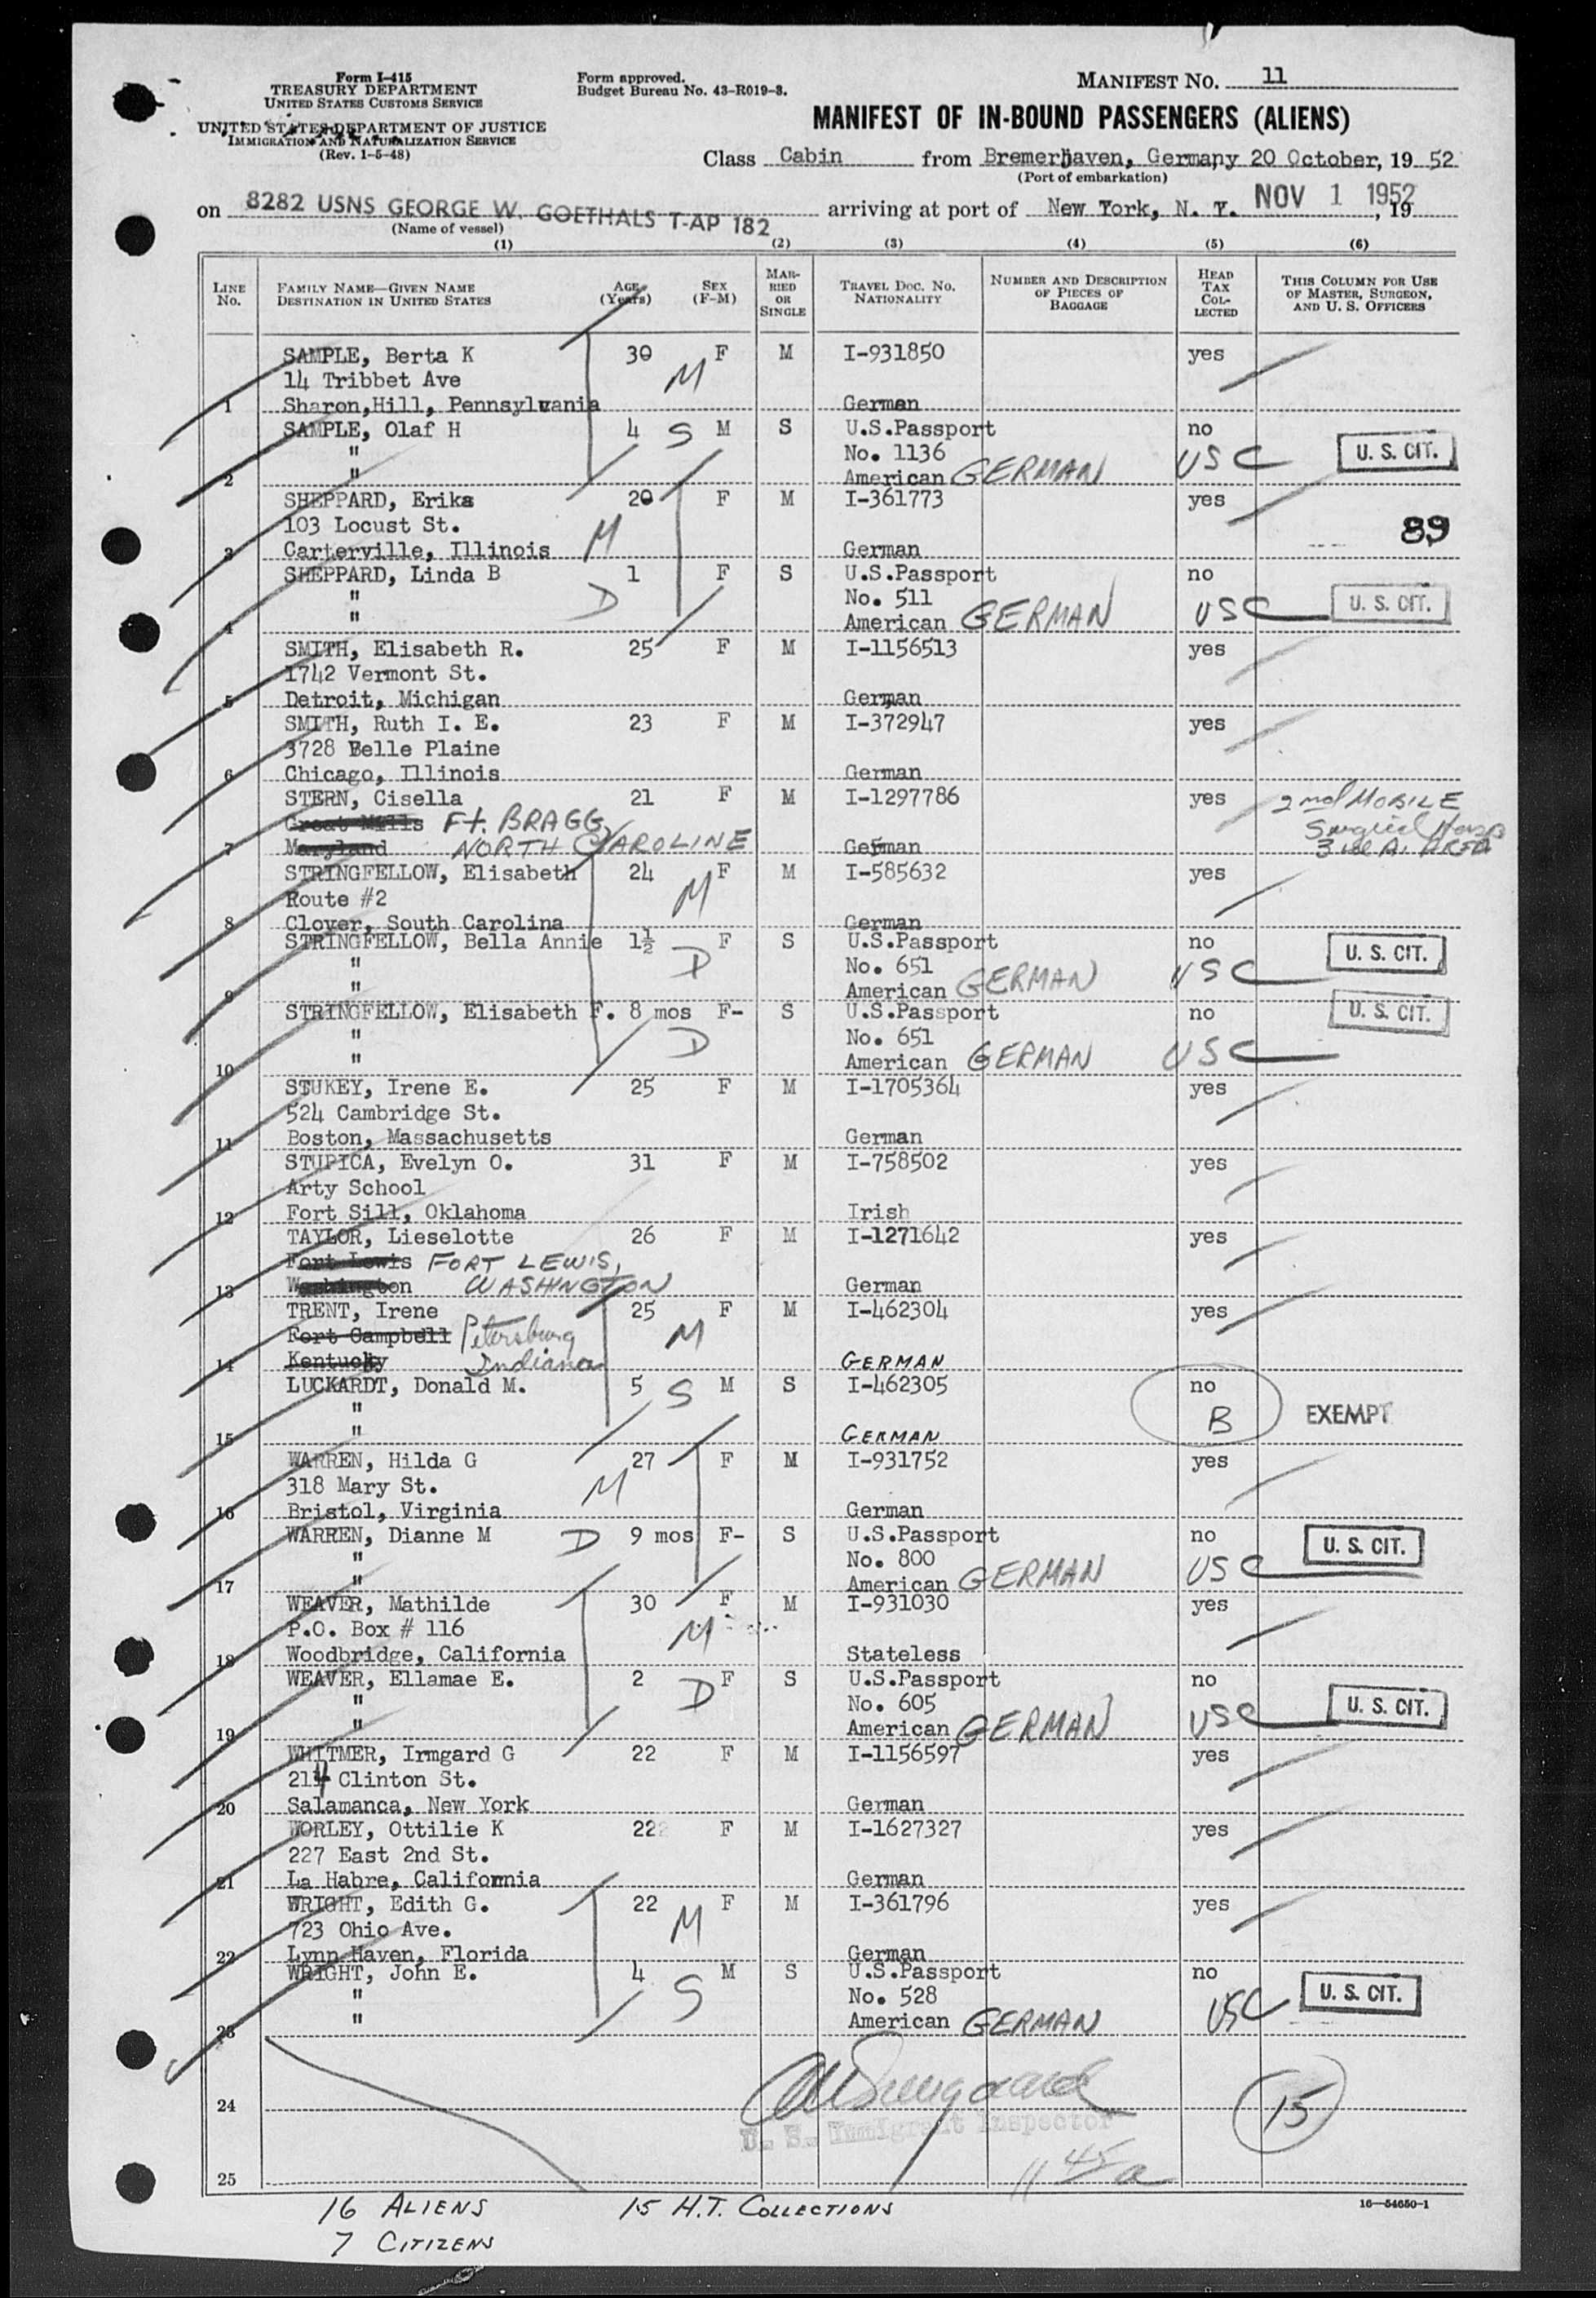 Form I-415
TREASURY DEPARTMENT
UNITED STATES CUSTOMS SERVICE
UNITED STATES DEPARTMENT OF JUSTICE
IMMIGRATION AND NATURALIZATION SERVICE
(Rev. 1-5-48)
Form approved.
Budget Bureau No. 43-R019-3.
MANIFEST NO. 11
MANIFEST OF IN-BOUND PASSENGERS (ALIENS)
Class Cabin from Bremerhaven, Germany 20 October, 19 52
(Port of embarkation)
on 8282 USNS GEORGE W. GOETHALS T-AP 182 arriving at port of New York, N. Y. NOV 1 1952, 19
(Name of vessel)
(1) (2) (3) (4) (5) (6)
LINE NO. FAMILY NAME—GIVEN NAME DESTINATION IN UNITED STATES AGE (Years) SEX (F-M) MARRIED OR SINGLE TRAVEL DOC. NO. NATIONALITY NUMBER AND DESCRIPTION OF PIECES OF BAGGAGE HEAD TAX COLLECTED THIS COLUMN FOR USE OF MASTER, SURGEON, AND U. S. OFFICERS
SAMPLE, Berta K 30 F M I-931850 yes
14 Tribbet Ave M
1 Sharon,Hill, Pennsylvania German
SAMPLE, Olaf H 4 S M S U.S.Passport no
" No. 1136 USC U. S. CIT.
2 " American GERMAN
SHEPPARD, Erika 20 F M I-361773 yes
103 Locust St. M 89
3 Carterville, Illinois German
SHEPPARD, Linda B 1 F S U.S.Passport no
" D No. 511 USC U. S. CIT.
4 " American GERMAN
SMITH, Elisabeth R. 25 F M I-1156513 yes
1742 Vermont St.
5 Detroit, Michigan German
SMITH, Ruth I. E. 23 F M I-372947 yes
3728 Belle Plaine
6 Chicago, Illinois German
STERN, Cisella 21 F M I-1297786 yes 2nd MOBILE
Great Mills Ft. BRAGG, Surgical Hosp
7 Maryland NORTH CAROLINE German AREA
STRINGFELLOW, Elisabeth 24 F M I-585632 yes
Route #2 M
8 Clover, South Carolina German
STRINGFELLOW, Bella Annie 1½ F S U.S.Passport no U. S. CIT.
" D No. 651 USC
9 " American GERMAN
STRINGFELLOW, Elisabeth F. 8 mos F- S U.S.Passport no U. S. CIT.
" D No. 651
10 " American GERMAN USC
STUKEY, Irene E. 25 F M I-1705364 yes
524 Cambridge St.
11 Boston, Massachusetts German
STUPICA, Evelyn O. 31 F M I-758502 yes
Arty School
12 Fort Sill, Oklahoma Irish
TAYLOR, Lieselotte 26 F M I-1271642 yes
Fort Lewis FORT LEWIS,
13 Washington WASHINGTON German
TRENT, Irene 25 F M I-462304 yes
Fort Campbell Petersburg M
14 Kentucky Indiana GERMAN
LUCKARDT, Donald M. 5 S M S I-462305 no
" B EXEMPT
15 " GERMAN
WARREN, Hilda G 27 F M I-931752 yes
318 Mary St. M
16 Bristol, Virginia German
WARREN, Dianne M D 9 mos F- S U.S.Passport no U. S. CIT.
" No. 800 USC
17 " American GERMAN
WEAVER, Mathilde 30 F M I-931030 yes
P.O. Box # 116 M
18 Woodbridge, California Stateless
WEAVER, Ellamae E. 2 D F S U.S.Passport no
" No. 605 U. S. CIT.
19 " American GERMAN USC
WHITMER, Irmgard G 22 F M I-1156597 yes
214 Clinton St.
20 Salamanca, New York German
WORLEY, Ottilie K 22 F M I-1627327 yes
227 East 2nd St.
21 La Habre, California German
WRIGHT, Edith G. 22 F M I-361796 yes
723 Ohio Ave. M
22 Lynn Haven, Florida German
WRIGHT, John E. 4 M S U.S.Passport no
" S No. 528 USC U. S. CIT.
23 " American GERMAN
24 15
U. S. Immigrant Inspector
25 11 45 a
16 ALIENS 15 H.T. COLLECTIONS 16—54650-1
7 CITIZENS